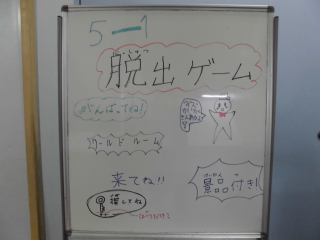 5-1
だっしゅつ
脱出ゲーム
がんばってね!
ワールドルーム
来てね!!
探してね
景品付き!